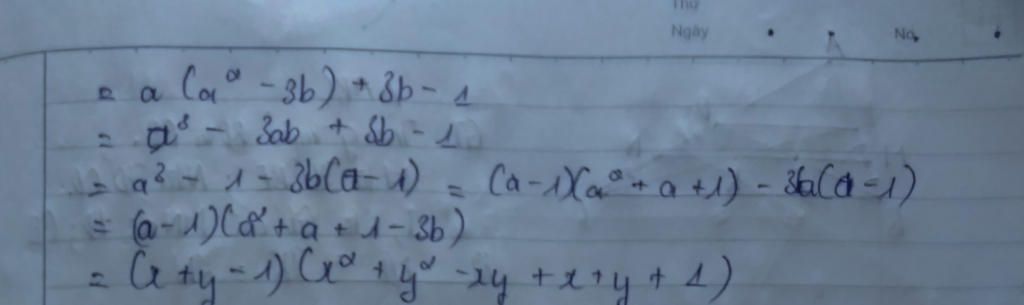 Thứ
Ngày No.
= a (a² - 3b) + 3b - 1
= a³ - 3ab + 3b - 1
= a³ - 1 - 3b(a-1) = (a-1)(a² + a + 1) - 3b(a-1)
= (a-1)(a² + a + 1 - 3b)
= (x + y - 1)(x² + y² - xy + x + y + 1)